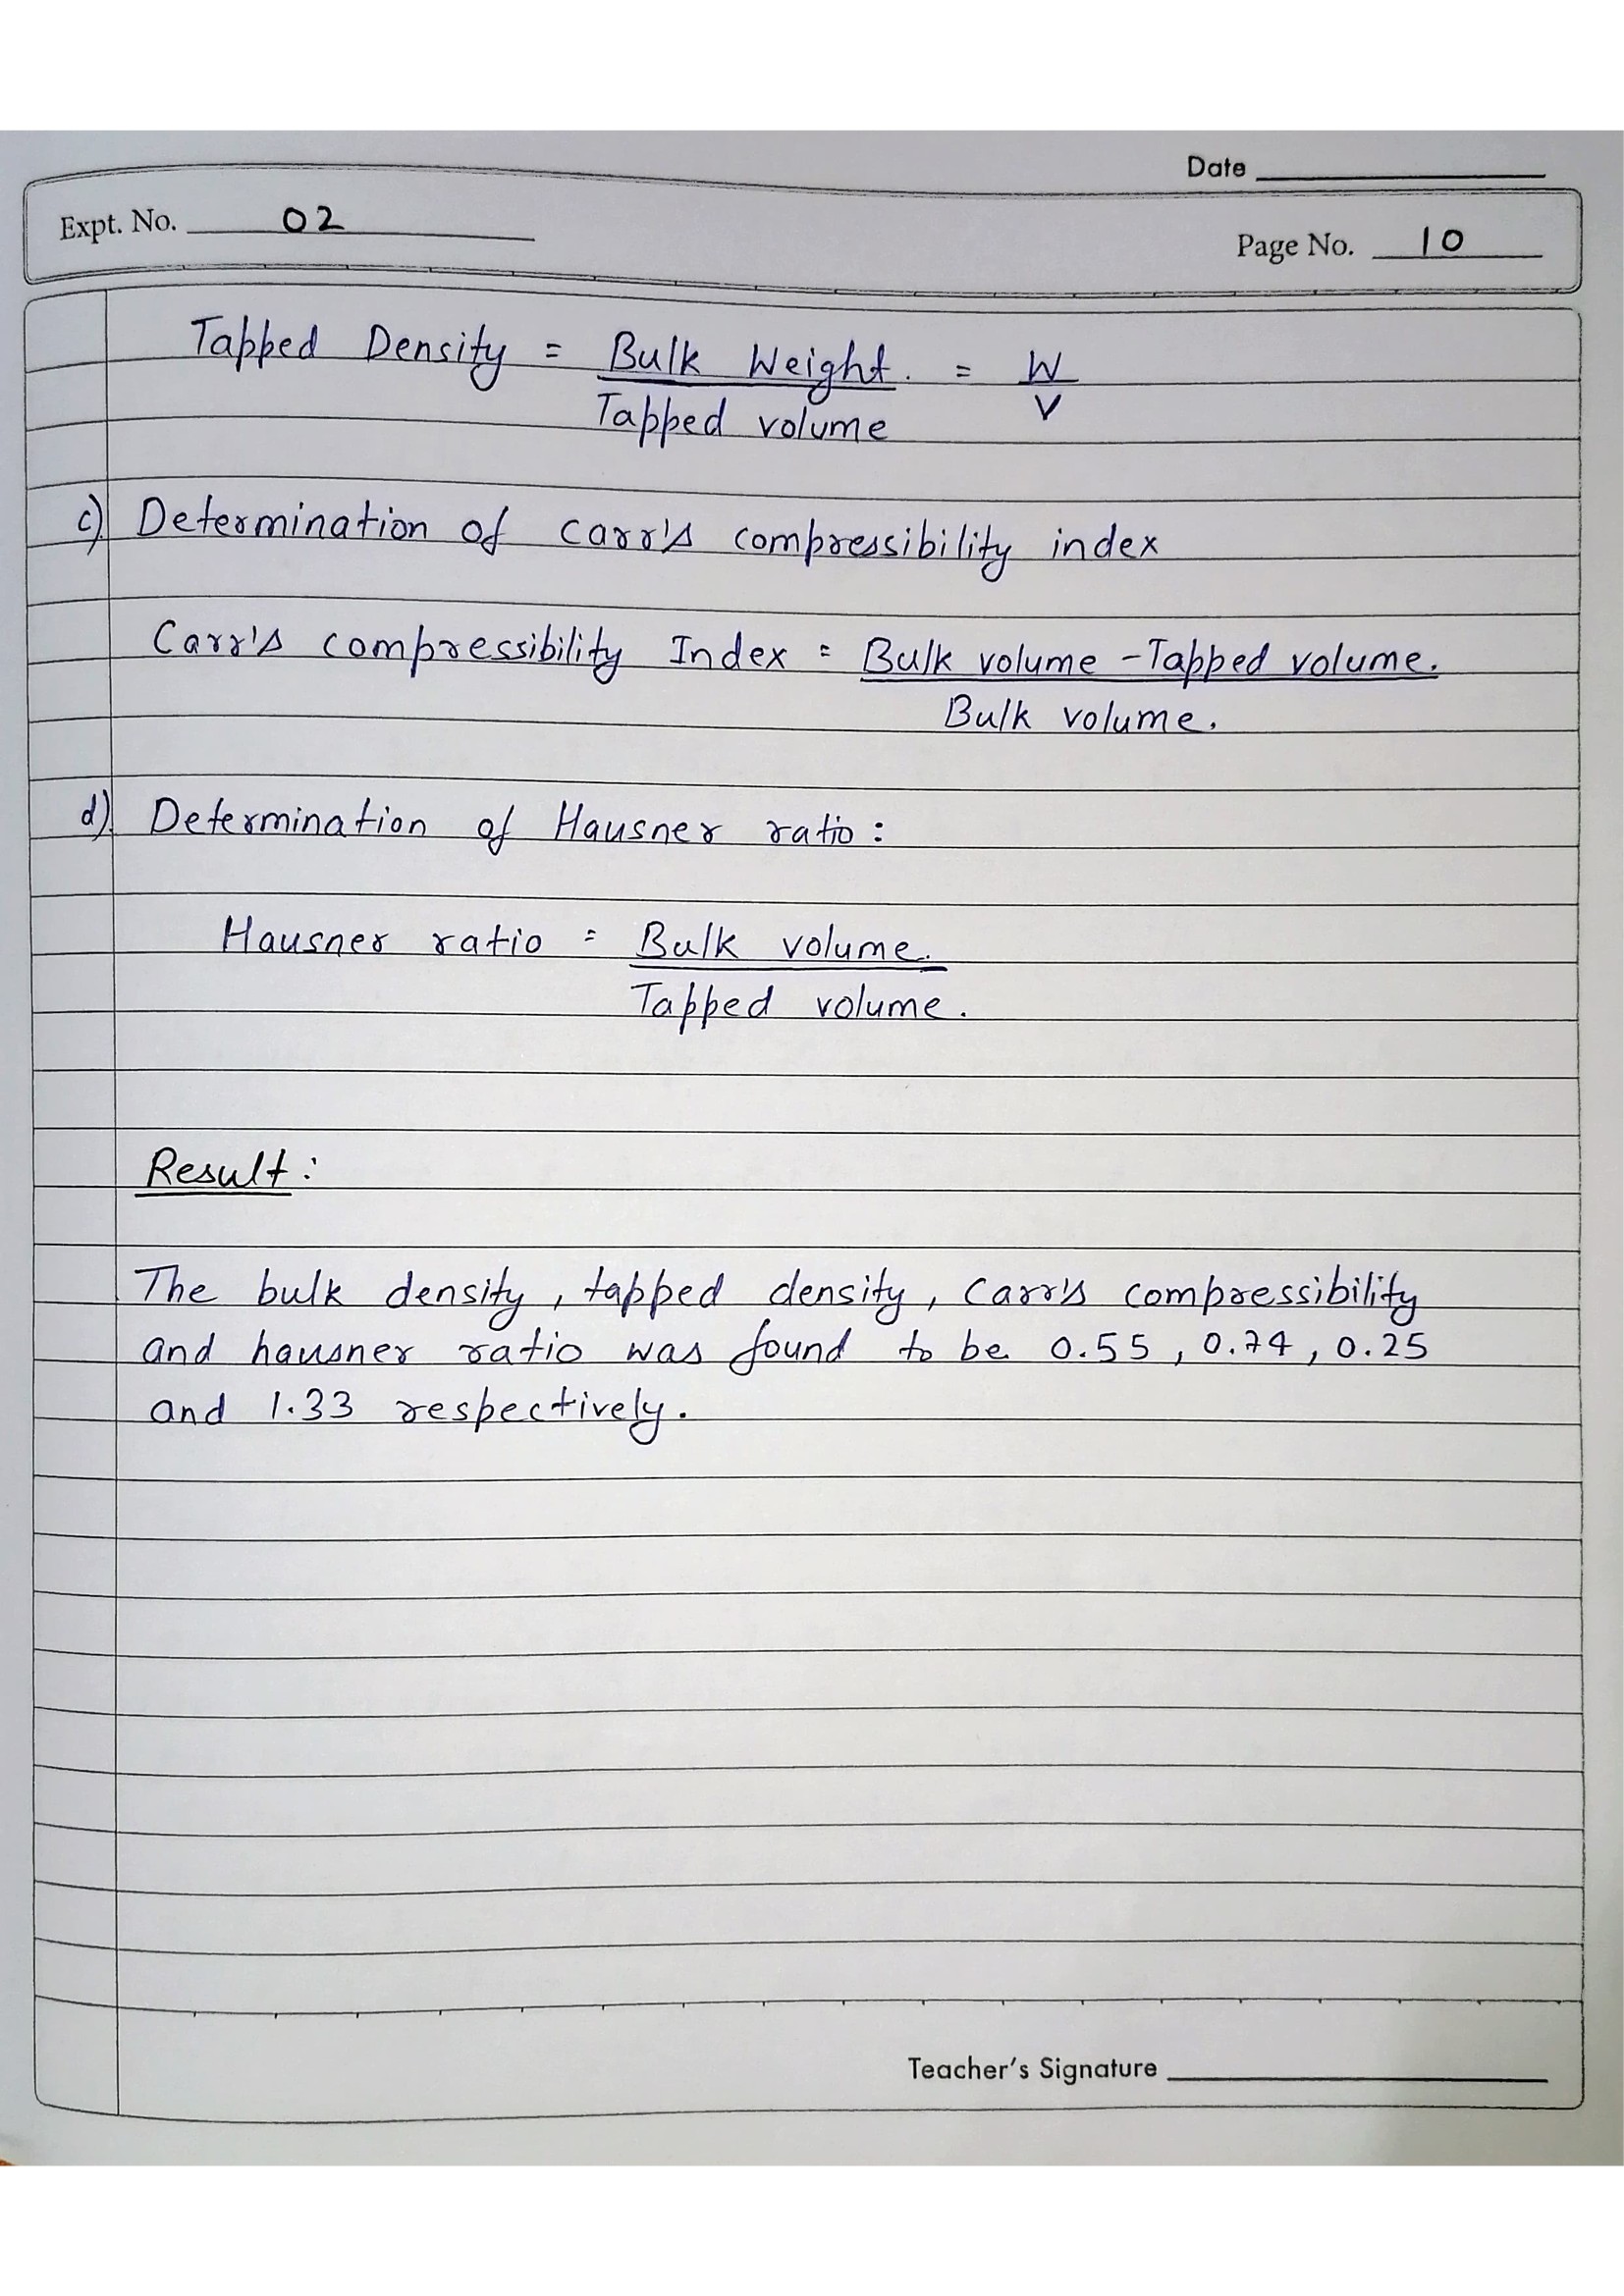 Date
Expt. No. 02
Page No. 10
Tapped Density = Bulk Weight. = W
Tapped volume V
c) Determination of Carr's compressibility index
Carr's compressibility Index = Bulk volume - Tapped volume.
Bulk volume.
d) Determination of Hausner ratio:
Hausner ratio = Bulk volume.
Tapped volume.
Result:
The bulk density, tapped density, Carr's compressibility
and hausner ratio was found to be 0.55, 0.74, 0.25
and 1.33 respectively.
Teacher's Signature